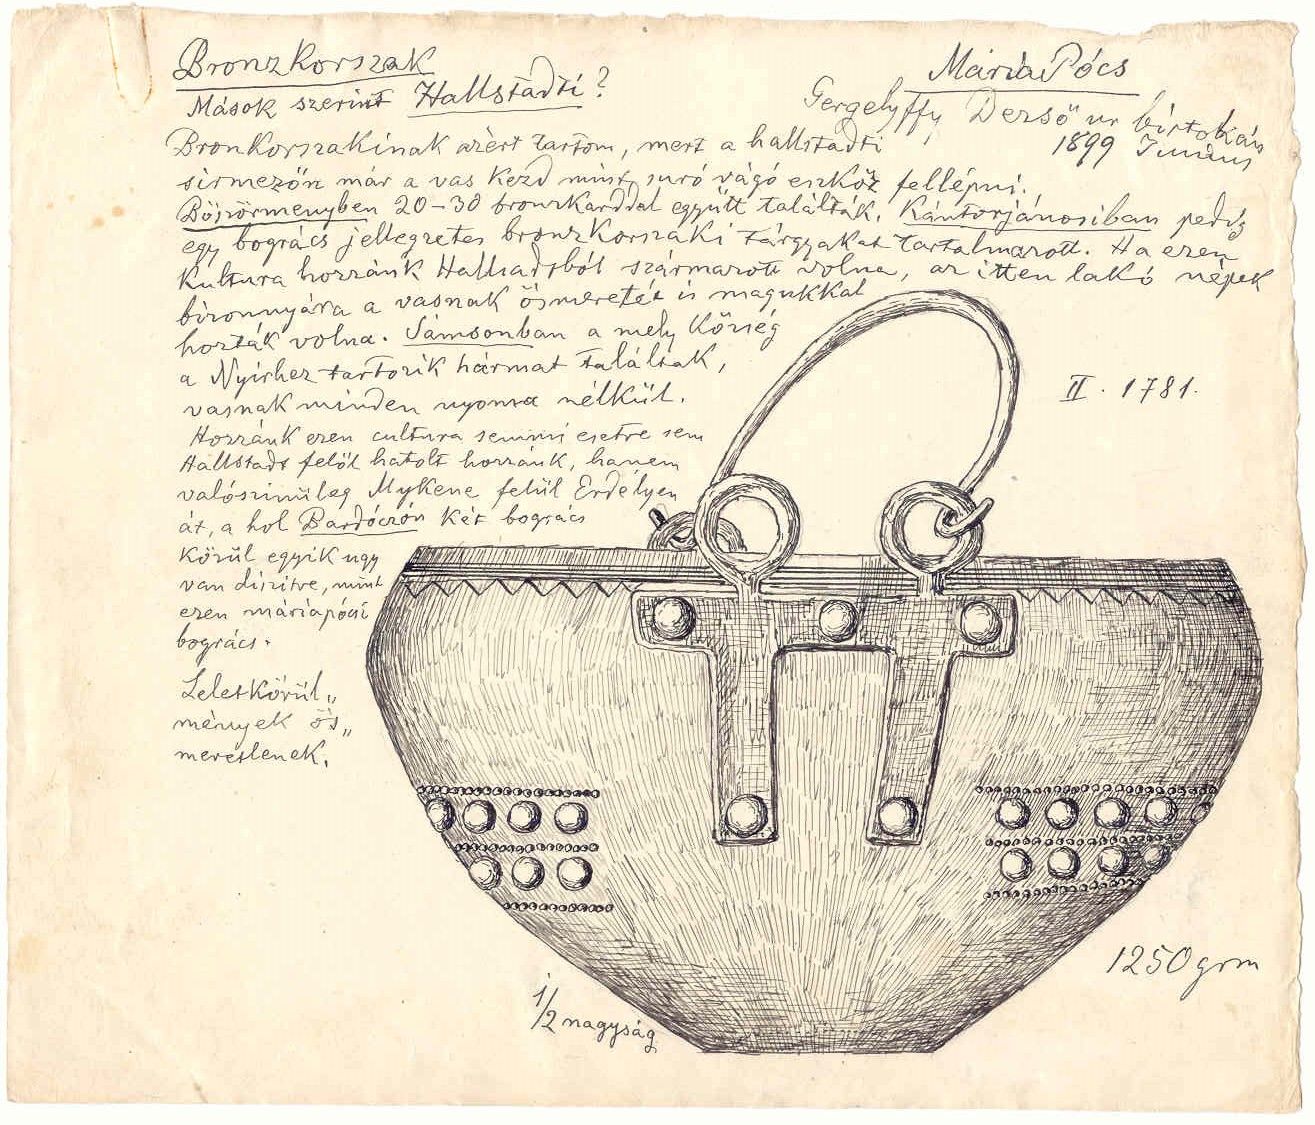 Bronzkorszak
Mások szerint Hallstadti?
MáriaPócs
Gergelyffy Dezső ur birtokán
1899 Junius
Bronkorszakinak azért tartom, mert a hallstadti
sirmezőn már a vas kezd mint suró vágó eszköz fellépni.
Böszörményben 20-30 bronzkarddal együtt találták. Kántorjánosiban pedig
egy bogrács jellegzetes bronzkorszaki tárgyakat tartalmazott. Ha ezen
kultura hozzánk Hallsadtból származott volna, az itten lakó népek
bizonnyára a vasnak ösmeretét is magukkal
hozták volna. Sámsonban a mely község
a Nyirhez tartozik hármat találtak,
vasnak minden nyoma nélkül.
Hozzánk ezen cultura semmi esetre sem
Hallstadt felől hatolt hozzánk, hanem
valószinüleg Mykene felül Erdélyen
át, a hol Bardóczón két bogrács
közül egyik ugy
van diszitve, mint
ezen máriapócsi
bogrács.
Leletkörül„
mények ös„
meretlenek.
II. 1781.
1250 grm
1/2 nagyság